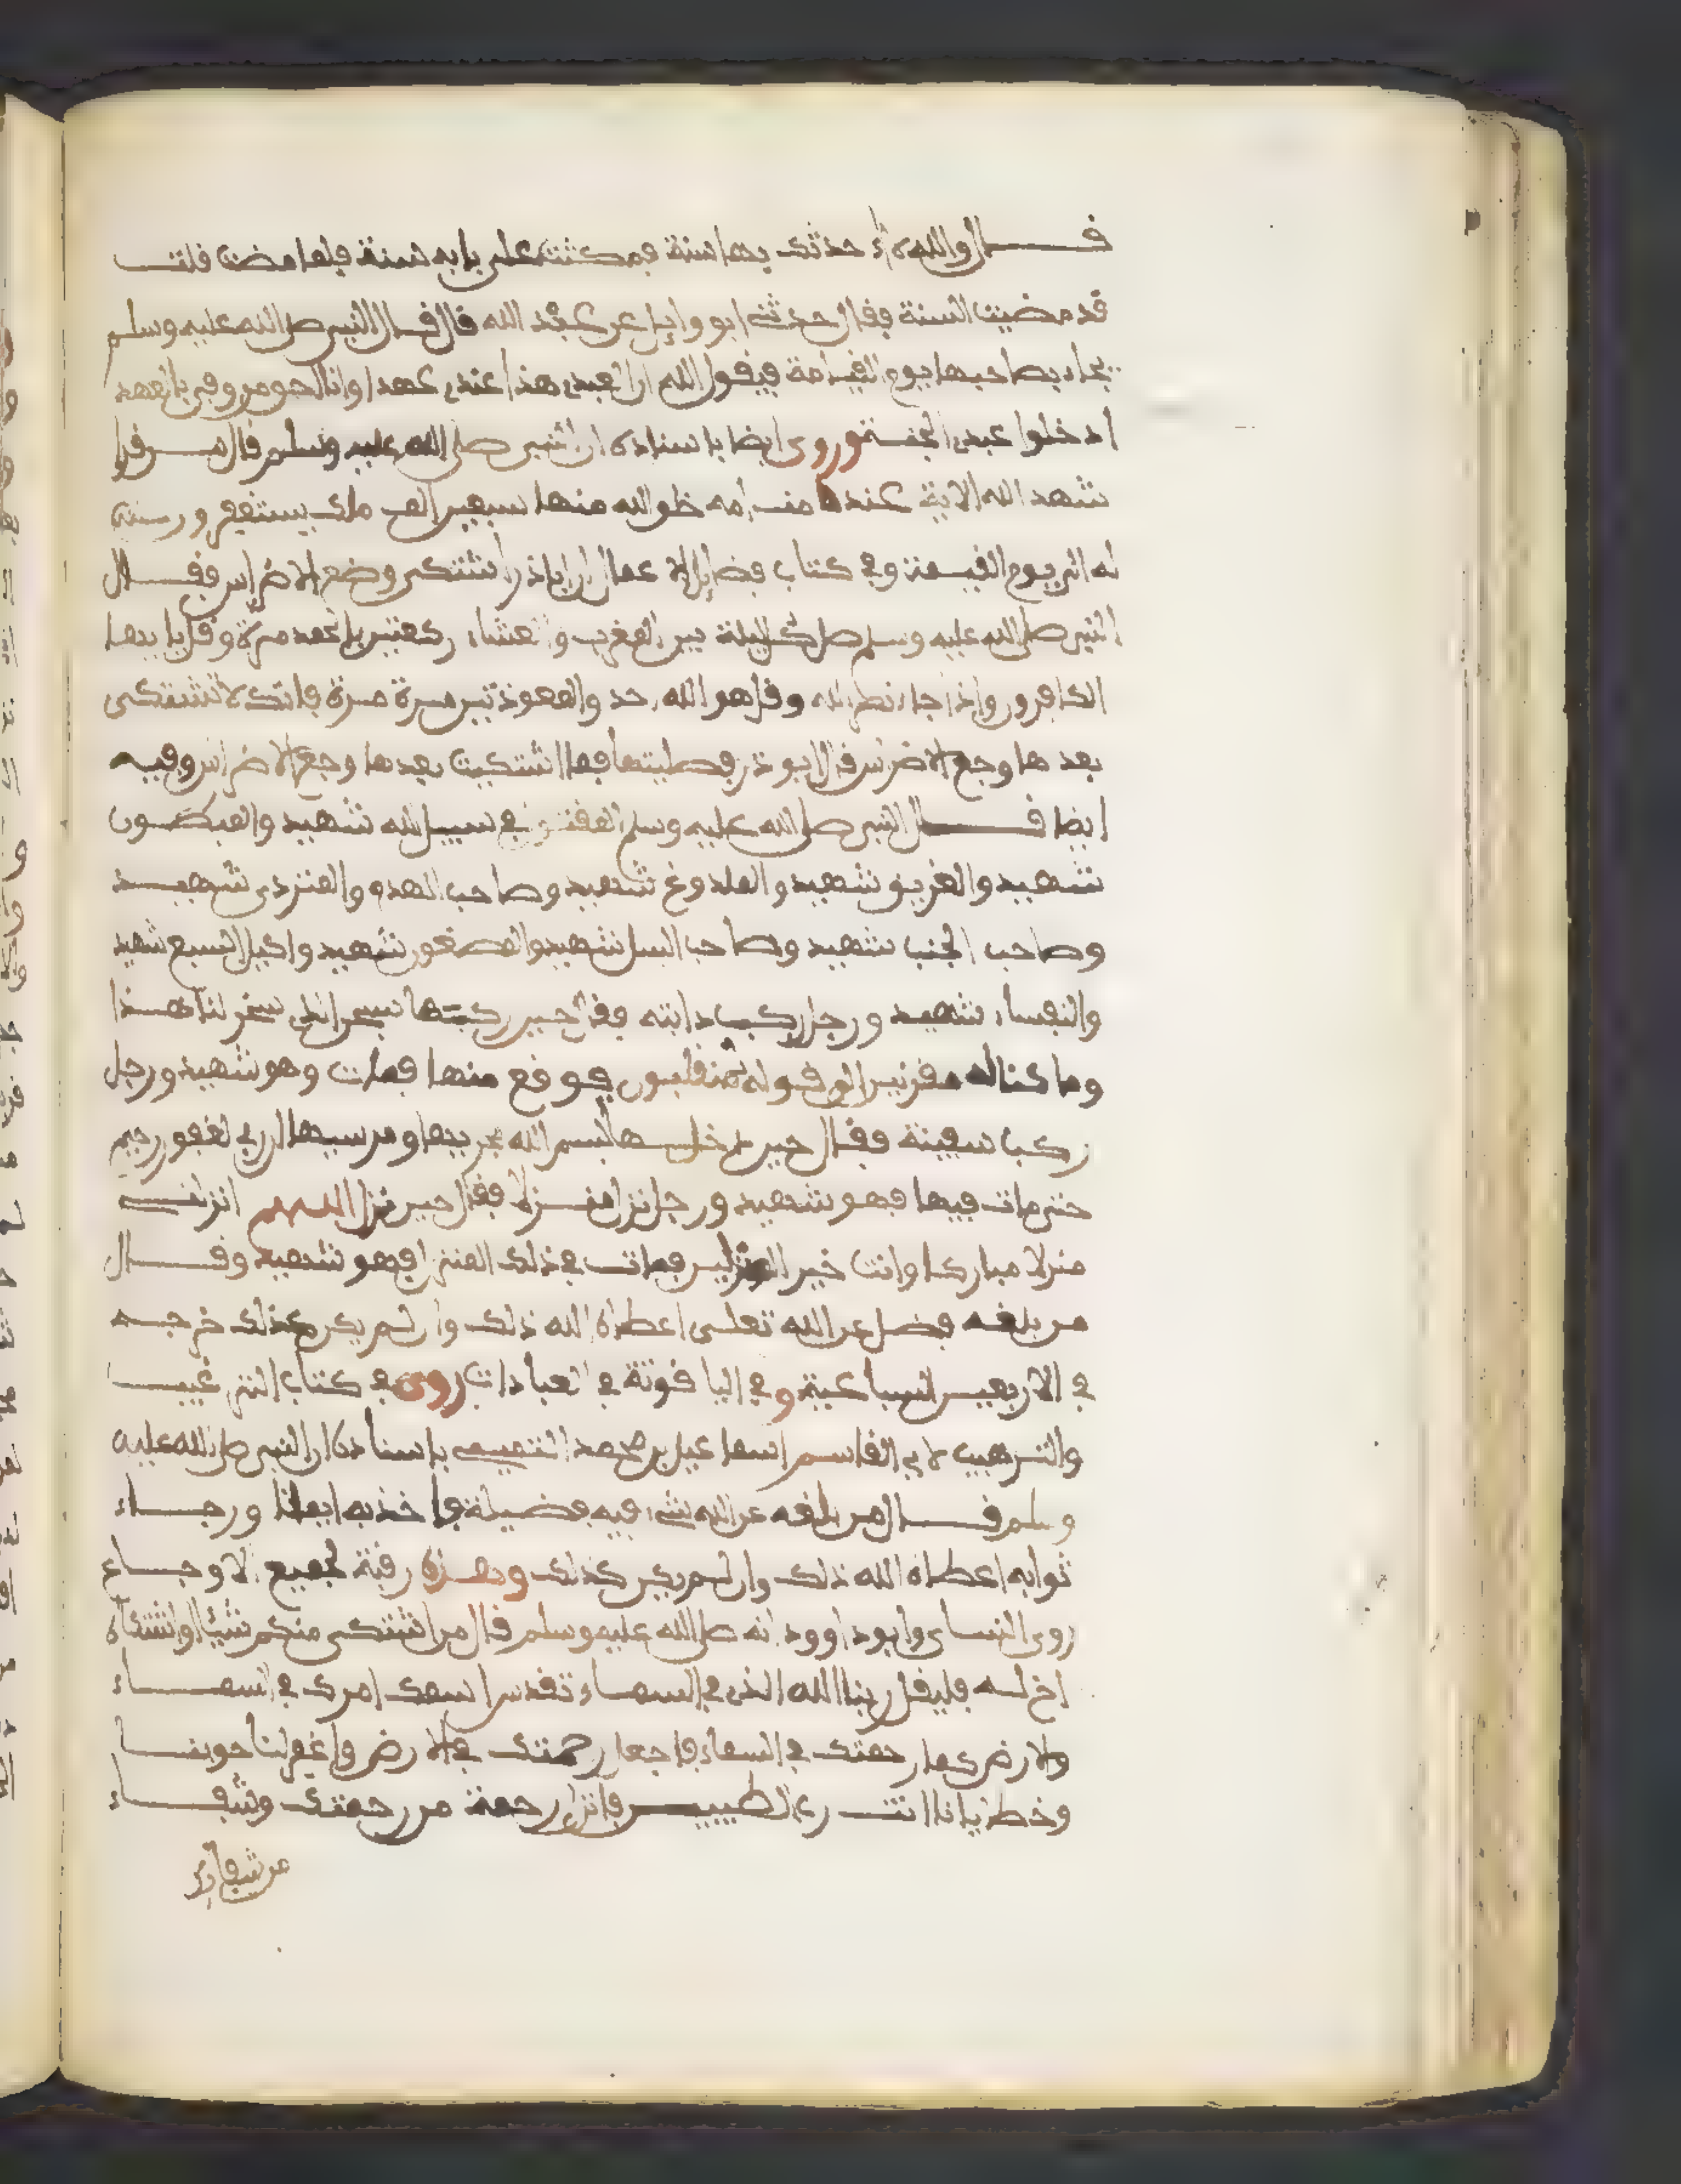 قال والله لا حدثتك بها سنة فمكثت على بابه سنة فلما مضت قلت
قد مضيت السنة فقال حدثني ابو وايل عن عبد الله قال قال النبي صلى الله عليه وسلم
يجاء بصاحبها يوم القيامة فيقول الله ان لعبدي هذا عندي عهدا وانا احق من وفى بالعهد
ادخلوا عبدي الجنة وروى ايضا باسناده ان النبي صلى الله عليه وسلم قال من قرا
شهد الله الاية عند منامه خلق الله منها سبعين الف ملك يستغفرون
له الى يوم القيمة وفي كتاب فضايل الاعمال ان اباذر اشتكى وضع الاضراس فقال
النبي صلى الله عليه وسلم صل كل ليلة بين المغرب والعشاء ركعتين بالحمد مرة وقل يا ايها
الكافرون واذا جاء نصر الله وقل هو الله احد والمعوذتين مرة مرة فانك لا تشتكى
بعدها وجع الاضراس قال ابو ذر فصليتها فما اشتكيت بعدها وجع الاضراس وفيه
ايضا قال النبي صلى الله عليه وسلم المقتول في سبيل الله شهيد والمبطون
شهيد والغريق شهيد والملدوغ شهيد وصاحب الهدم والمتردي شهيد
وصاحب الجنب شهيد وصاحب السل شهيد واكيل السبع شهيد
والنفساء شهيد ورجل ركب دابته فقال حين ركبها سبحن الذي سخر لنا هذا
وما كنا له مقرنين الى قوله لمنقلبون فوقع منها فمات وهو شهيد ورجل
ركب سفينة فقال حين دخلها بسم الله مجريها ومرسيها ان ربي لغفور رحيم
حتى مات فيها فهو شهيد ورجل نزل منزلا فقال حين نزل اللهم انزلني
منزلا مباركا وانت خير المنزلين فمات في ذلك المنزل فهو شهيد وقال
من بلغه فضل عن الله تعلى اعطاه الله ذلك وان لم يكن كذلك خرجه
في الاربعين السباعية وفي الياقوتة في العبادات روى في كتاب الترغيب
والترهيب لابي القاسم اسماعيل بن محمد التيمي باسناده ان النبي صلى الله عليه
وسلم قال من بلغه عن الله شيء فيه فضيلة فاخذ به ايمانا ورجاء
ثوابه اعطاه الله ذلك وان لم يكن كذلك وهذه رقية لجميع الاوجاع
روى النساي وابو داوود انه صلى الله عليه وسلم قال من اشتكى منكم شيئا او اشتكاه
اخ له فليقل ربنا الله الذي في السماء تقدس اسمك امرك في السماء
والارض كما رحمتك في السماء فاجعل رحمتك في الارض واغفر لنا حوبنا
وخطايانا انت رب الطيبين فانزل رحمة من رحمتك وشفاء
من شفائك